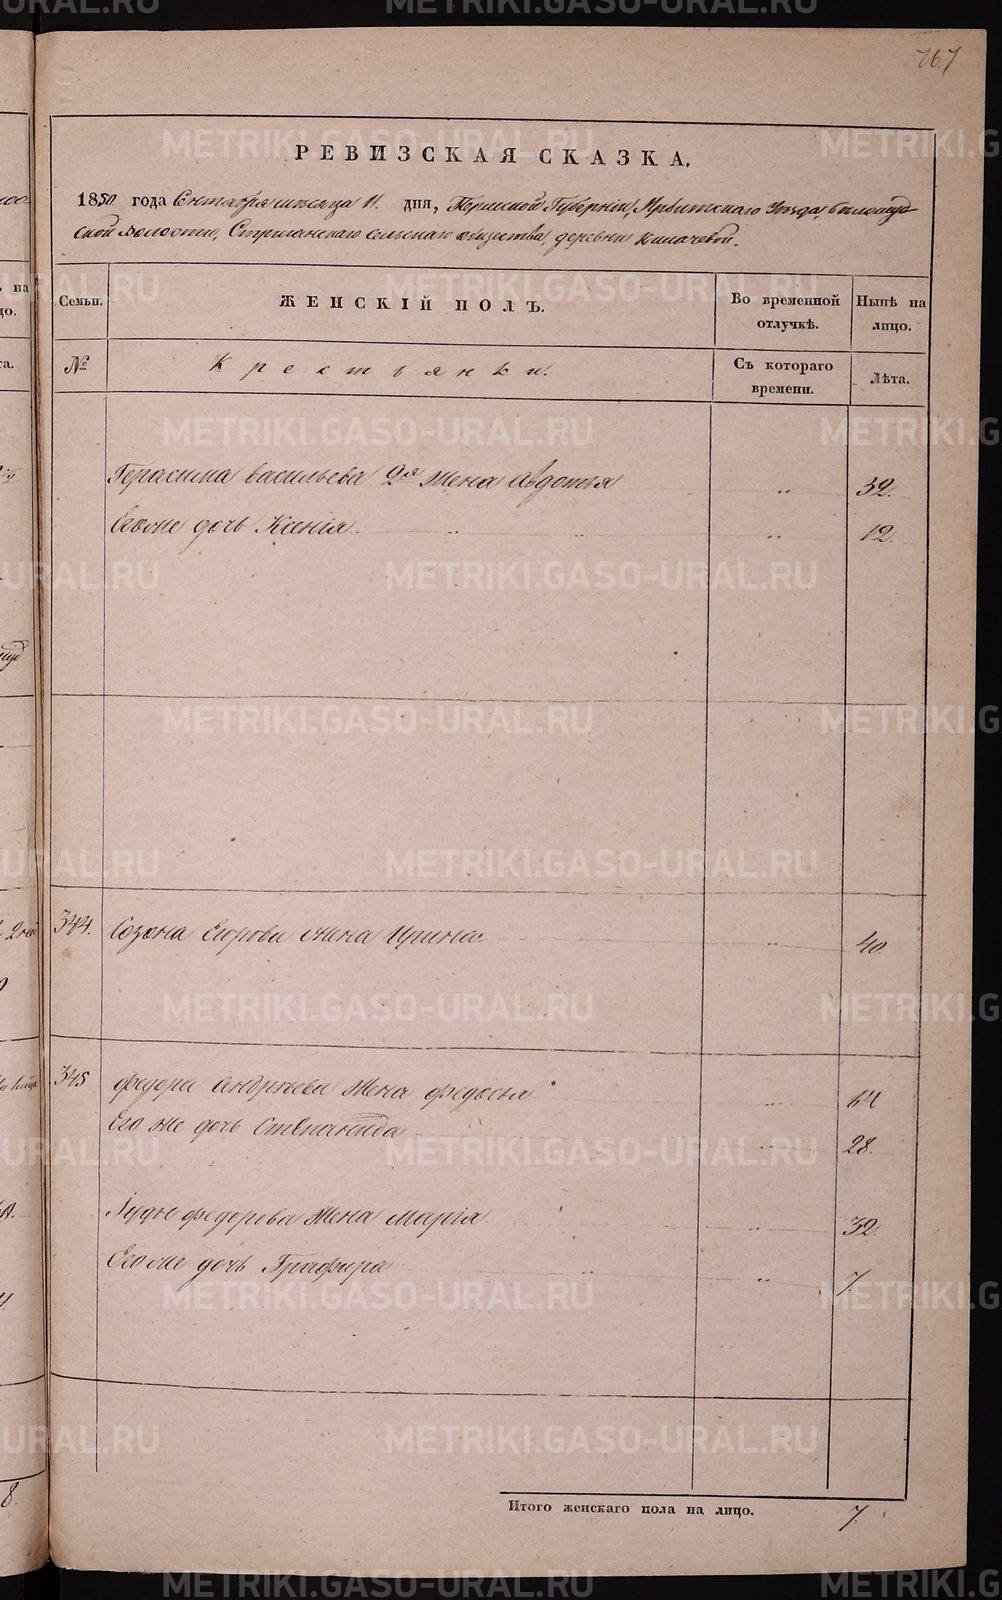 767
РЕВИЗСКАЯ СКАЗКА.
1850 года Сентября месяца 11. дня, Пермской Губернiи, Ирбитскаго Уѣзда, Бѣлослуд-
ской Волости, Стриганскаго сельскаго общества, деревни Килачевой.
Семьи. ЖЕНСКIЙ ПОЛЪ. Во временной отлучкѣ. Нынѣ на лицо.
№ Крестьянки. Съ котораго времени. Лѣта.
Герасима Васильева 2я жена Авдотья " 32.
Его же дочь Ксенiя " 12.
344. Созона Егорова жена Ирина " 40.
345 Федора Андрѣева жена Федосья " 64
Его же дочь Степанида " 28.
Iуды Федорова жена Марiя " 32.
Его же дочь Графира " 7.
Итого женскаго пола на лицо. 7.
METRIKI.GASO-URAL.RU